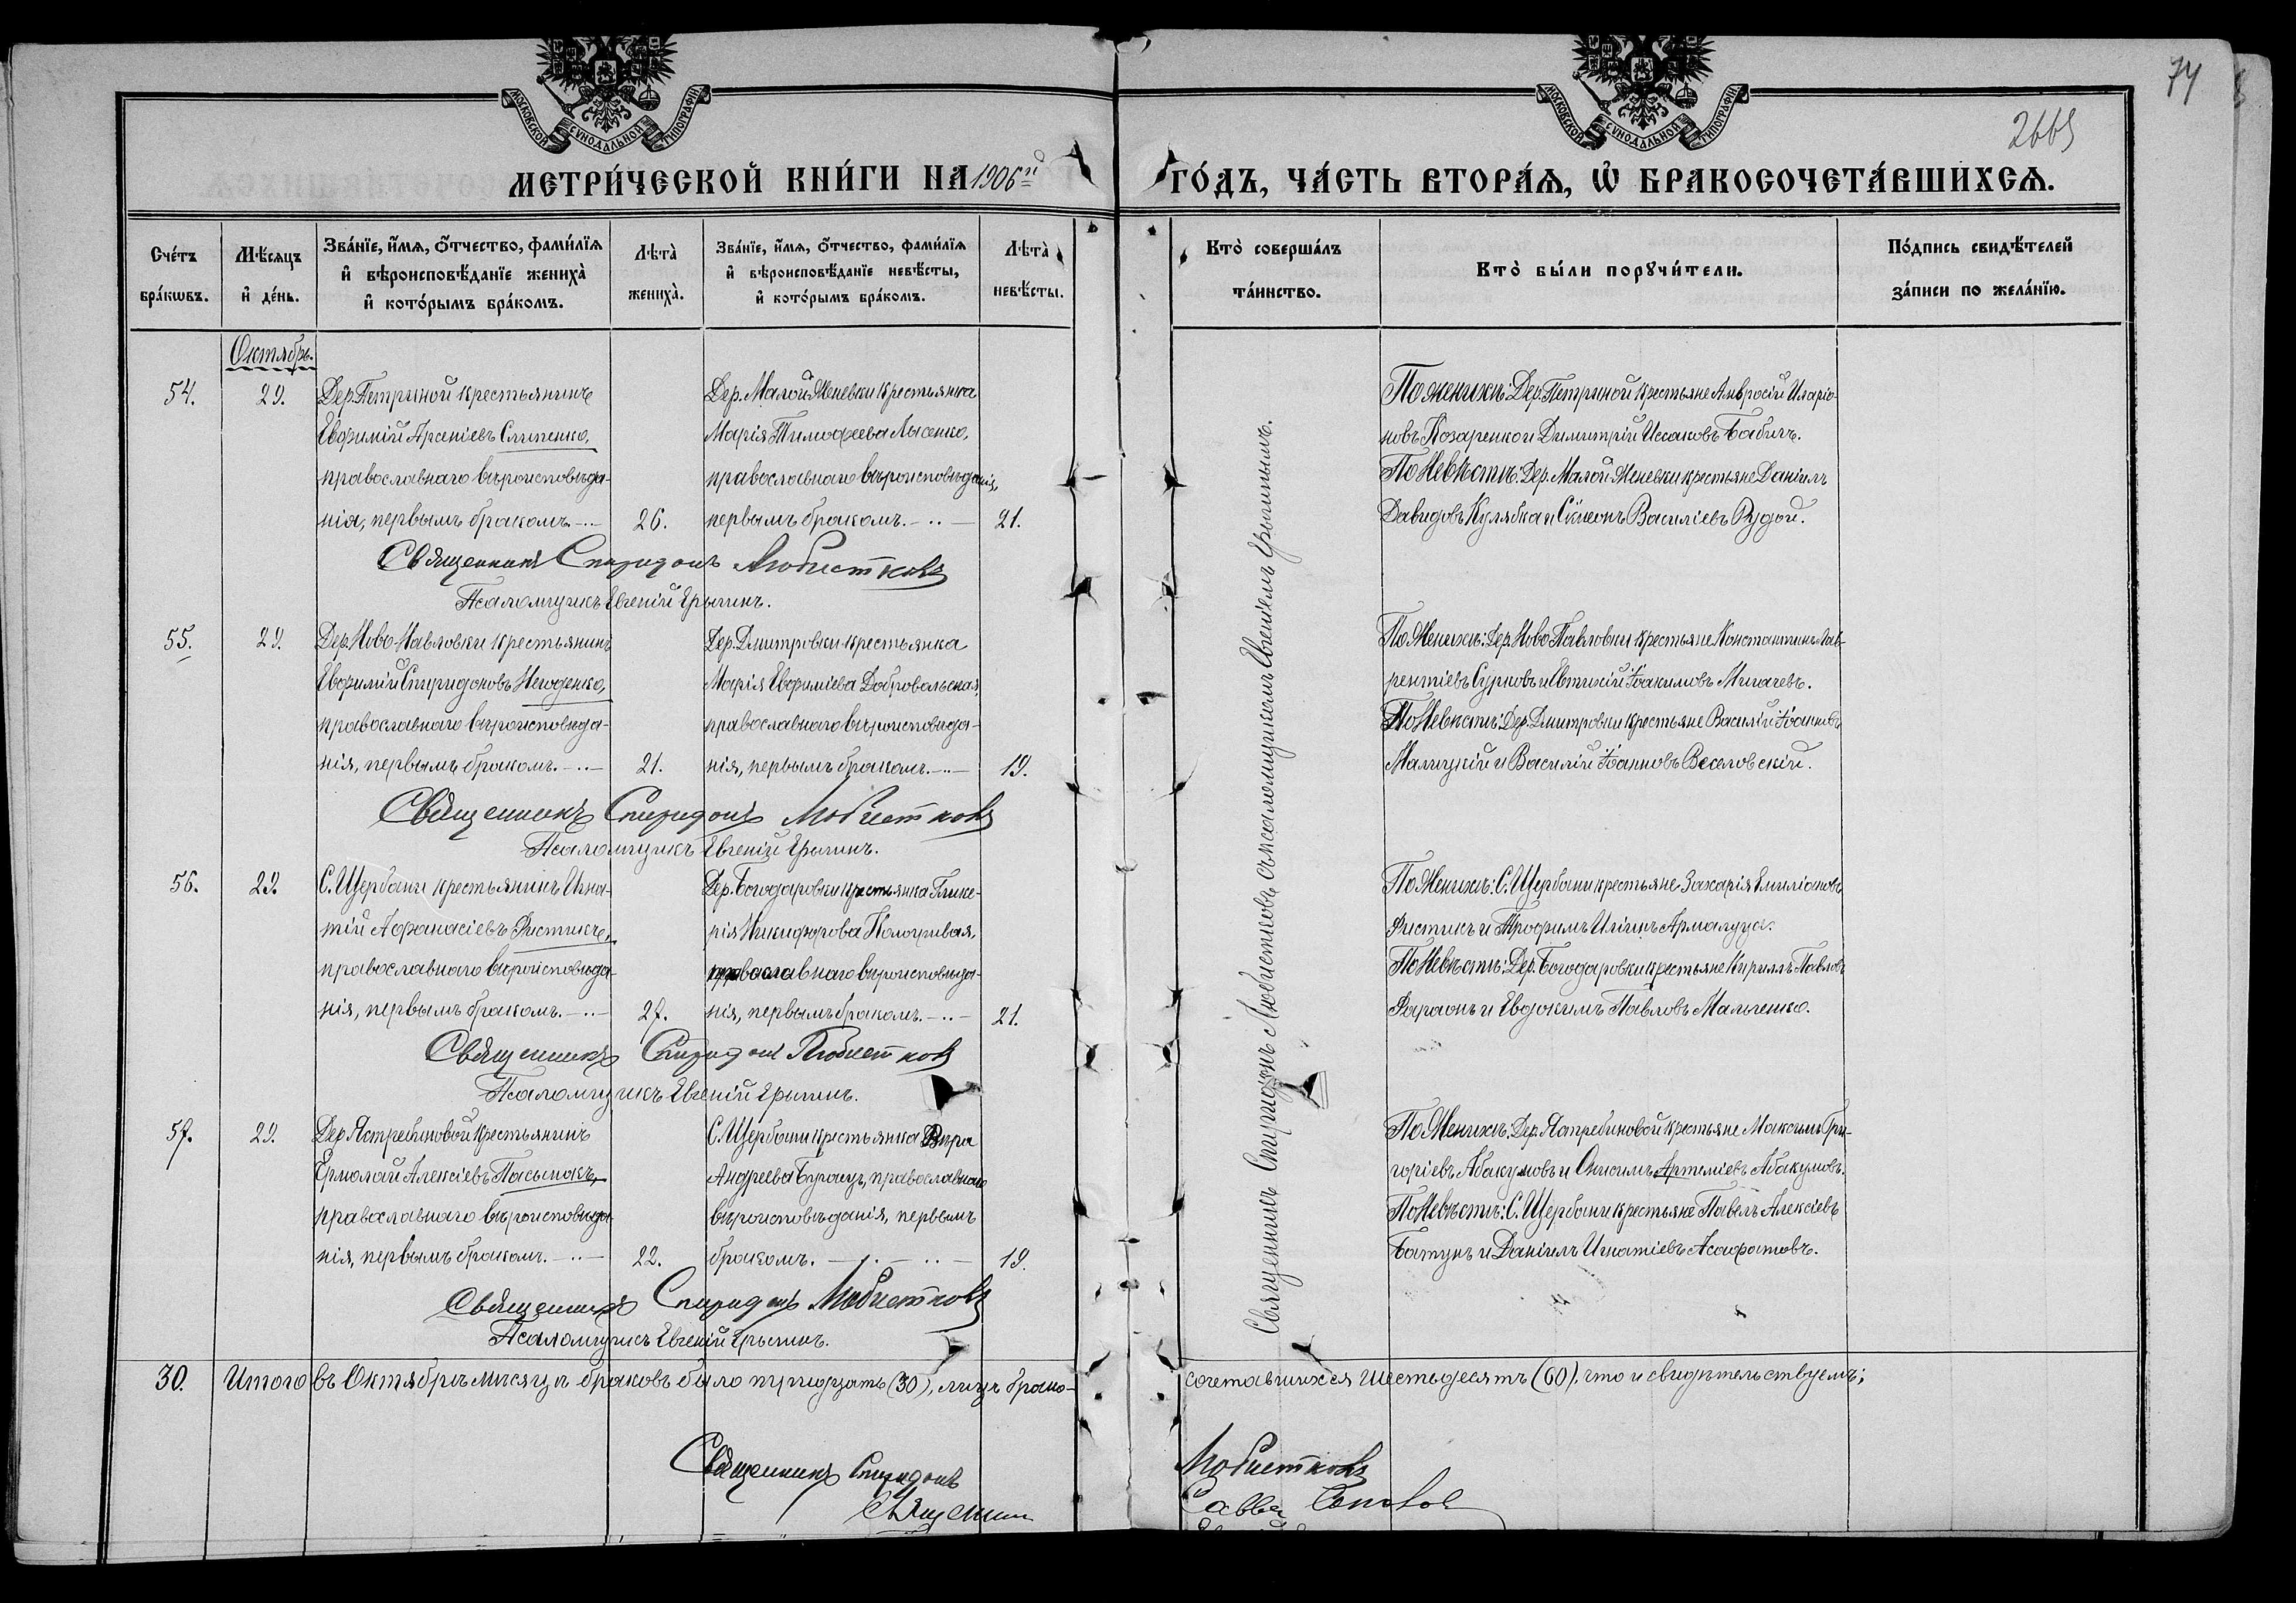 74
2665
МОСКОВСКОЙ СѴНОДАЛЬНОЙ ТИПОГРАФІИ
МОСКОВСКОЙ СѴНОДАЛЬНОЙ ТИПОГРАФІИ
МЕТРИ́ЧЕСКОЙ КНИ́ГИ НА 1906й ГО́ДЪ, ЧА́СТЬ ВТОРА́Ѧ, Ѡ҆ БРАКОСОЧЕТА́ВШИХСѦ.
Сче́тъ бра́кѡвъ.
Мѣ́сяцъ и҆ де́нь.
Зва́нїе, и҆́мѧ, ѻ҆́тчество, фами́лїѧ
и҆ вѣроисповѣ́данїе жениха̀
и҆ кото́рымъ бра́комъ.
Лѣта̀ жениха̀.
Зва́нїе, и҆́мѧ, ѻ҆́тчество, фами́лїѧ
и҆ вѣроисповѣ́данїе невѣ́сты,
и҆ кото́рымъ бра́комъ.
Лѣта̀ невѣ́сты.
Кто̀ соверша́лъ та́инство.
Кто̀ бы́ли порꙋчи́тели.
По́дпись свидѣ́телей за́писи по жела́нїю.
Октябрь.
54.
29.
Дер. Петриной крестьянинъ
Евфимій Арсеніевъ Слипенко,
православнаго вѣроисповѣда-
нія, первымъ бракомъ.
26.
Дер. Малой Женевки крестьянка
Марія Тимофеева Лысенко,
православнаго вѣроисповѣданія,
первымъ бракомъ.
21.
По женихѣ: Дер. Петриной крестьяне Амвросій Иларіо-
новъ Козаренко и Димитрій Иссаковъ Бабичъ.
По Невѣстѣ: Дер. Малой Женевки крестьяне Даніилъ
Давидовъ Кулябка и Сѵмеонъ Василіевъ Рудой.
Священникъ Спиридонъ Любистковъ
Псаломщикъ Евгеній Ерыгинъ.
55.
29.
Дер. Ново-Павловки крестьянинъ
Евфимій Спиридоновъ Негоденко,
православнаго вѣроисповѣда-
нія, первымъ бракомъ.
21.
Дер. Дмитровки крестьянка
Марія Евфиміева Добровольская,
православнаго вѣроисповѣда-
нія, первымъ бракомъ.
19.
По Женихѣ: Дер. Ново Павловки крестьяне Константинъ Лав-
рентіевъ Сурковъ и Евтихій Іоакимовъ Мигачевъ.
По Невѣстѣ: Дер. Дмитровки крестьяне Василій Іоанновъ
Малицкій и Василій Іоанновъ Веселовскій.
Священникъ Спиридонъ Любистковъ
Псаломщикъ Евгеній Ерыгинъ.
56.
29.
С. Щербани крестьянинъ Игна-
тій Афанасіевъ Фистикъ,
православнаго вѣроисповѣда-
нія, первымъ бракомъ.
27.
Дер. Богодаровки крестьянка Глике-
рія Никифорова Кологривая,
православнаго вѣроисповѣда-
нія, первымъ бракомъ.
21.
По Женихѣ: С. Щербани крестьяне Захарія Емиліановъ
Фистикъ и Трофимъ Иліинъ Армалуца.
По Невѣстѣ: Дер. Богодаровки крестьяне Кириллъ Павловъ
Фараонъ и Евдокимъ Павловъ Мальченко.
Священникъ Спиридонъ Любистковъ
Псаломщикъ Евгеній Ерыгинъ.
57.
29.
Дер. Ястребиновой крестьянинъ
Ермолай Алексіевъ Пасынокъ,
православнаго вѣроисповѣда-
нія, первымъ бракомъ.
22.
С. Щербани крестьянка Вѣра
Андреева Бурацъ, православнаго
вѣроисповѣданія, первымъ
бракомъ.
19.
По Женихѣ: Дер. Ястребиновой крестьяне Максимъ Гри-
горіевъ Абакумовъ и Онисимъ Артеміевъ Абакумовъ.
По Невѣстѣ: С. Щербани крестьяне Павелъ Алексіевъ
Батунъ и Даніилъ Игнатіевъ Асафатовъ.
Священникъ Спиридонъ Любистковъ
Псаломщикъ Евгеній Ерыгинъ.
Священникъ Спиридонъ Любистковъ съ псаломщикомъ Евгеніемъ Ерыгинымъ.
30. Итого въ Октябрѣ мѣсяцѣ браковъ было тридцать (30), лицъ брако-
сочетавшихся шестьдесятъ (60). что и свидѣтельствуемъ;
Священникъ Спиридонъ Любистковъ
Священникъ Савва